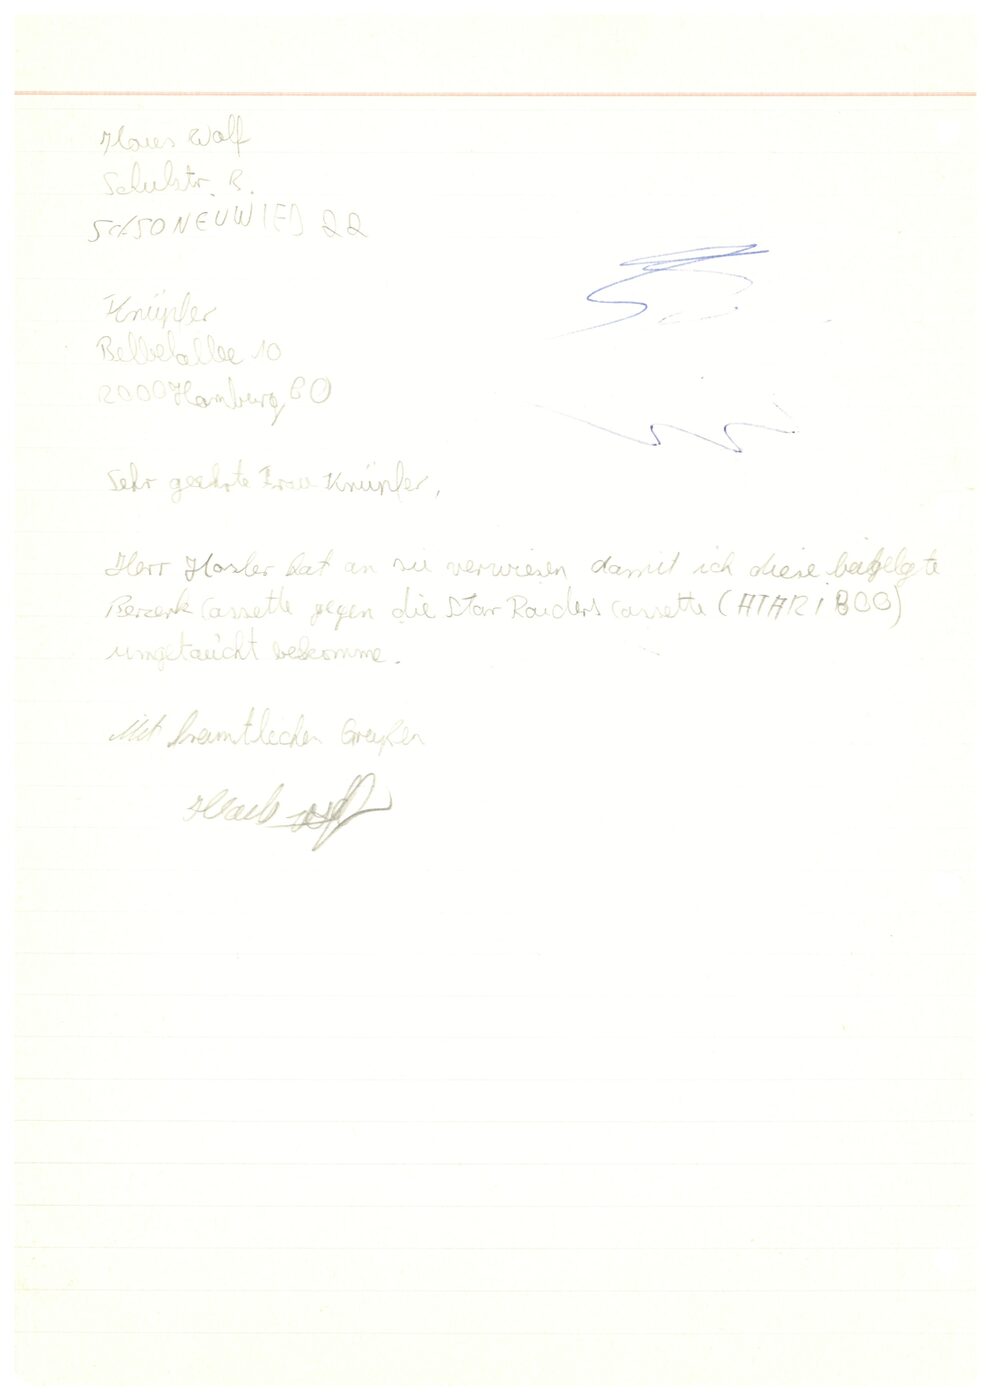 Wolf
Schulstr. 8.
5450 NEUWIED 22
Knüpfer
Bebelallee 10
2000 Hamburg 60
Sehr geehrte Frau Knüpfer,
Herr Hasler hat an sie verwiesen damit ich diese beigelegte
Berzerk Cassette gegen die Star Raiders Cassette (ATARI 800)
umgetaucht bekomme.
Mit